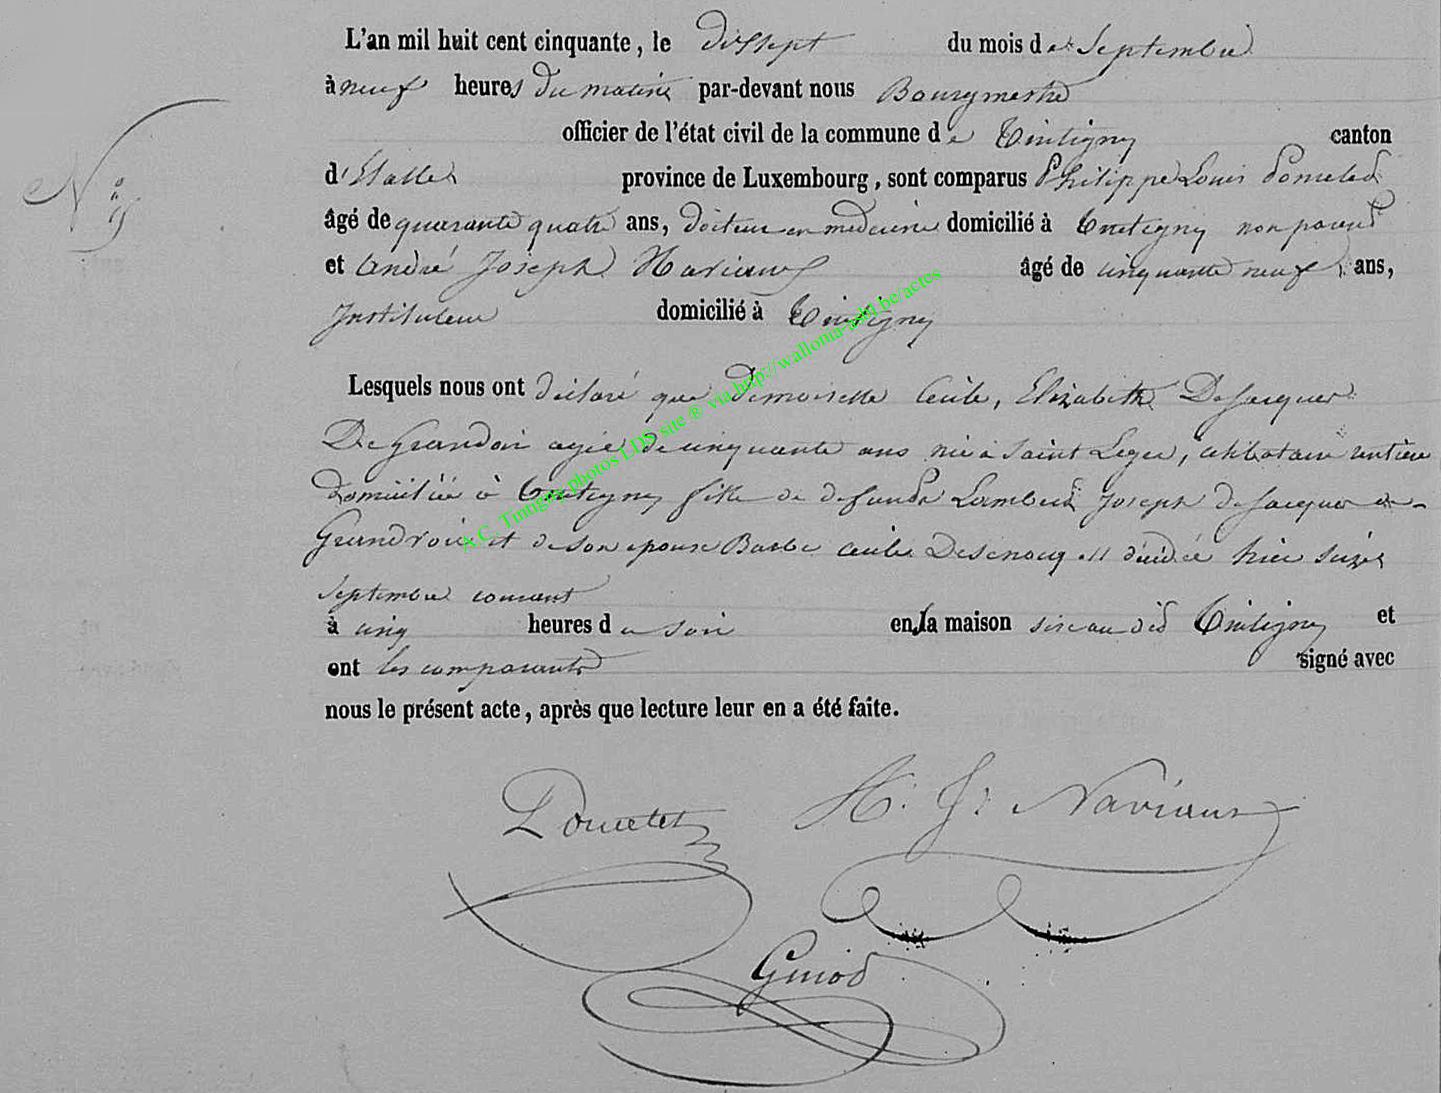 L'an mil huit cent cinquante, le dissept du mois de Septembre
à neuf heures du matin par-devant nous Bourgmestre
officier de l'état civil de la commune de Tintigny canton
d'Etalle province de Luxembourg, sont comparus Philippe Louis Poncelet
N° 9
âgé de quarante quatre ans, docteur en medecine domicilié à Tintigny non parent
et André Joseph Naviaux âgé de cinquante neuf ans,
Instituteur domicilié à Tintigny
Lesquels nous ont déclaré que demoiselle Cécile, Elizabeth De Jacquier
De Grandvoir agée de cinquante ans née à Saint Leger, célibataire rentière
domiciliée à Tintigny fille de defunt Lambert Joseph de Jacquier de
Grandvoir et de son epouse Barbe Cecile est décédée hier seize
Septembre courant
à cinq heures du soir en la maison sise au dit Tintigny et
ont les comparants signé avec
nous le présent acte, après que lecture leur en a été faite.
Poncelet A. J. Naviaux
Guiod
A.C. Tintigny photos LDS site ® via http://wallonia-asbl.be/actes